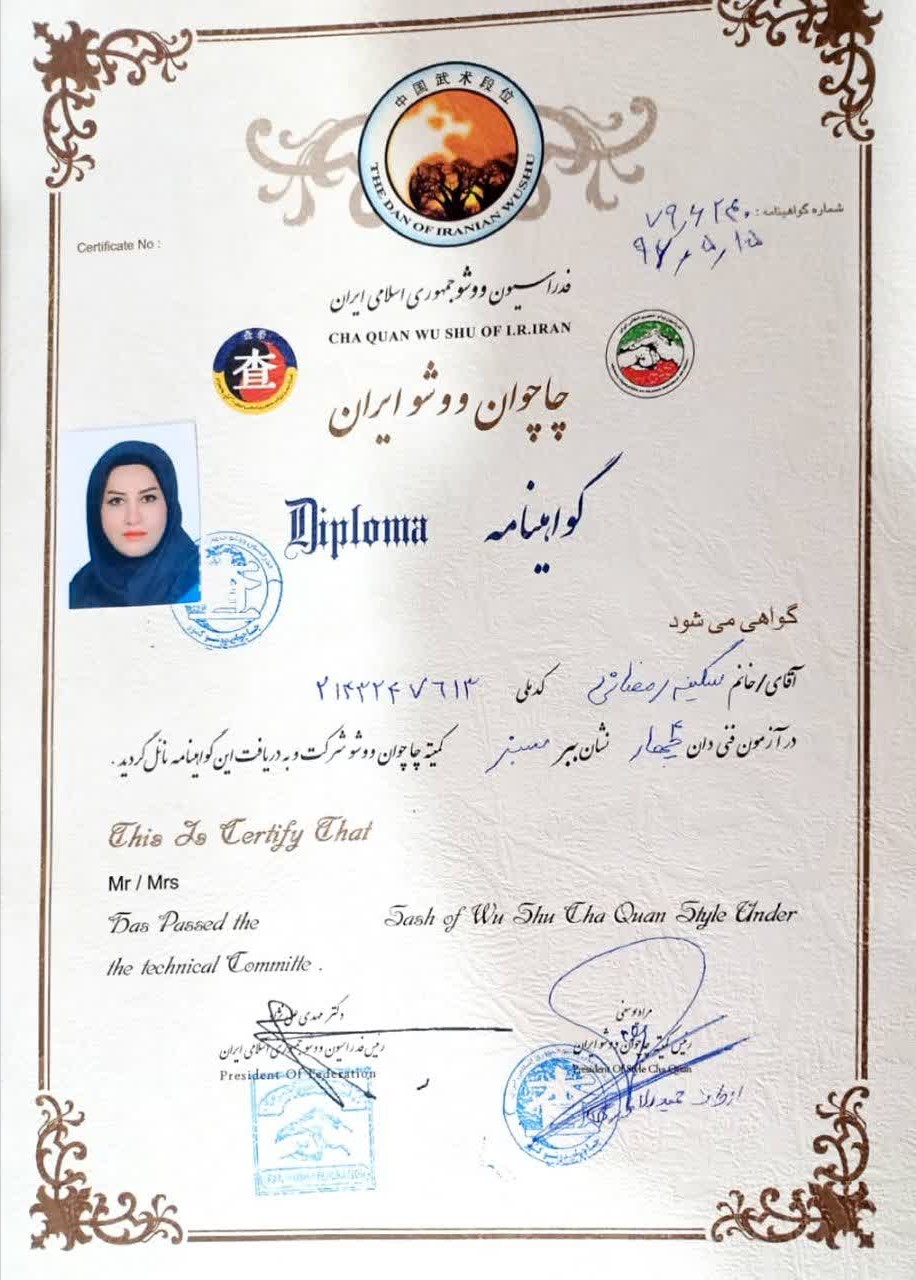 中国武术段位
THE DAN OF IRANIAN WUSHU
شماره گواهینامه :
Certificate No :
۹۷٫۵٫۱۵
فدراسیون ووشو جمهوری اسلامی ایران
CHA QUAN WU SHU OF I.R.IRAN
查
چاچوان ووشو ایران
Diploma گواهینامه
گواهی می شود
آقای/خانم سکینه رمضانی کدملی ۲۱۴۳۲۴۷۶۱۳
در آزمون فنی دان ۴ چهار نشان ببر سبز کمیته چاچوان ووشو شرکت و به دریافت این گواهینامه نائل گردید .
This Is Certify That
Mr / Mrs
Has Passed the Sash of Wu Shu Cha Quan Style Under
the technical Committe .
دکتر مهدی علی نژاد
رئیس فدراسیون ووشو جمهوری اسلامی ایران
President Of Federation
رئیس کمیته چاچوان ووشو ایران
President Of Style Cha Quan
از طرف